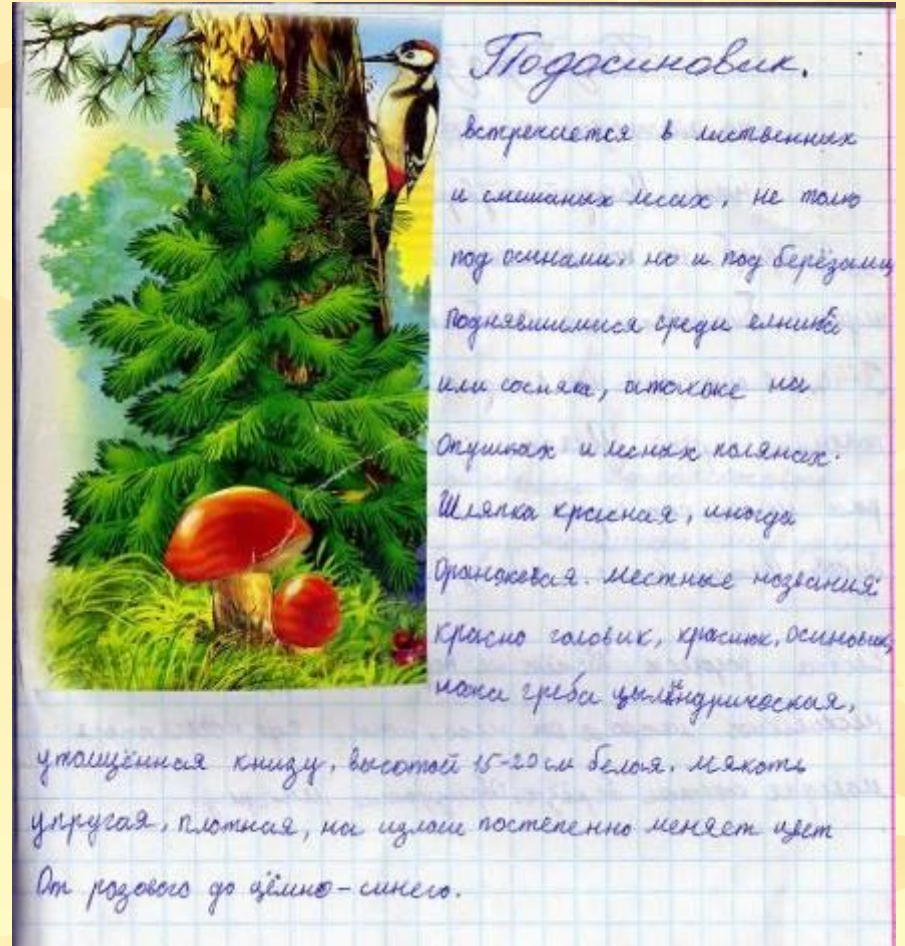 Подосиновик.
встречается в лиственных
и смешаных лесах, не толко
под осинами, но и под берёзами
поднявшимися среди елника
или сосняка, атакже на
Опушках и лесных полянах.
Шляпка красная, иногда
Оранжевая. местные названия:
красно головик, краснюк, осиновик,
ножа греба цылиндрическая,
утощённая книзу, высотой 15-20 см белая. мякоть
упругая, плотная, на изломе постепенно меняет цвет
От розового до цёмно-синего.